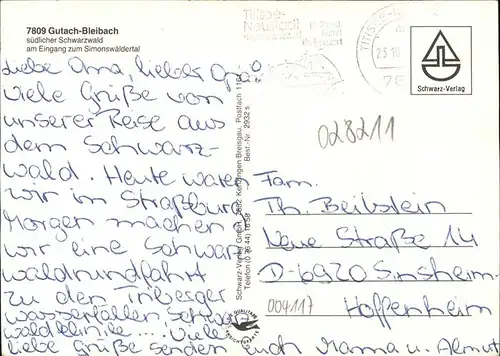 7809 Gutach-Bleibach
südlicher Schwarzwald
am Eingang zum Simonswäldertal
Titisee-
Neustadt
23.10
78
Schwarz-Verlag
Liebe Oma, lieber Opa!
viele Grüße von
unserer Reise aus
dem Schwarz-
wald. Heute waren
wir im Straßburg
Morgen machen
wir eine Schwarz
waldrundfahrt
zu den Triberger
wasserfällen
waldklinik... Viele
liebe Grüße senden euch Mama u. Almut
Schwarz-Verlag GmbH, 7832 Kenzingen Breisgau, Postfach
Telefon (0 76 44) 16 58 Best.-Nr. 2932 s
028211
Fam.
Th. Beibstein
Neue Straße 14
D-6920 Sinsheim
004117 Hoffenheim